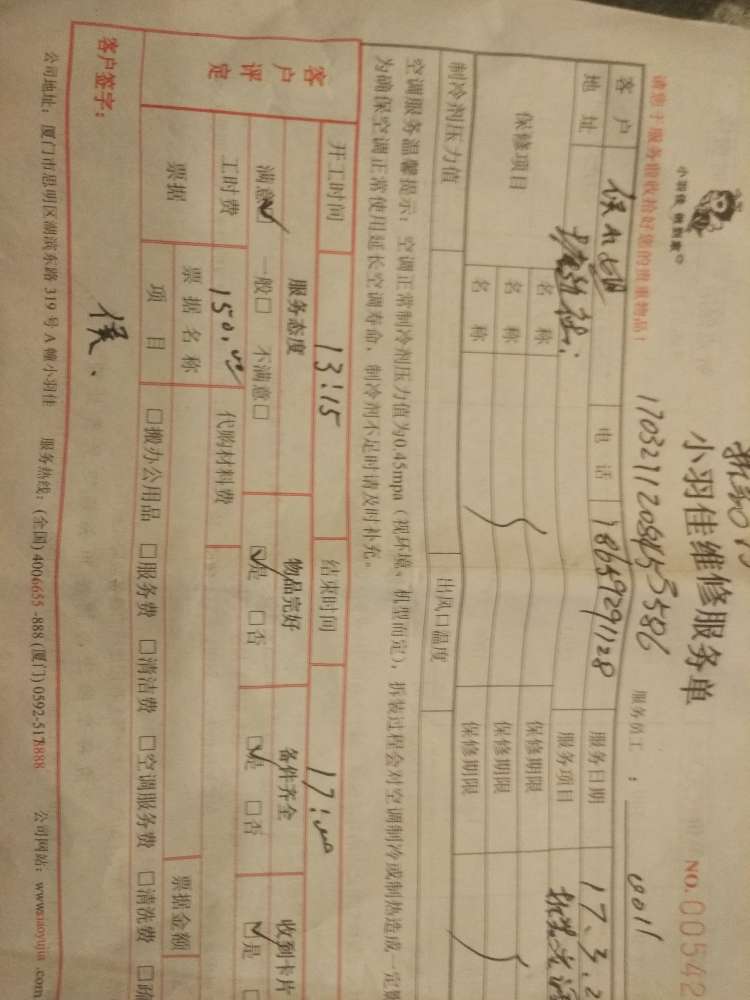 小羽佳 做到家
小羽佳维修服务单
NO.000542
请您于服务前收拾好您的贵重物品！
服务员工：
客户
电话
18659291128
服务日期
17.3.2
地址
服务项目
保修项目
名称
保修期限
名称
保修期限
名称
保修期限
制冷剂压力值
出风口温度
空调服务温馨提示：空调正常制冷剂压力值为0.45mpa（视环境、机型而定），拆装过程会对空调制冷或制热造成一定
为确保空调正常使用延长空调寿命，制冷剂不足时请及时补充。
客户评定
开工时间
13:15
结束时间
17:00
服务态度
物品完好
备件齐全
收到卡片
满意☑ 一般□ 不满意□
☑是 □否
☑是 □否
☑是
工时费
150.00
代购材料费
票据
票据名称
票据金额
项目
□搬办公用品 □服务费 □清洁费 □空调服务费 □清洗费 □疏
客户签字：
侯
公司地址：厦门市思明区湖滨东路319号A幢小羽佳 服务热线：(全国) 4006655-888 (厦门) 0592-5178888 公司网站：www.xiaoyujia.com